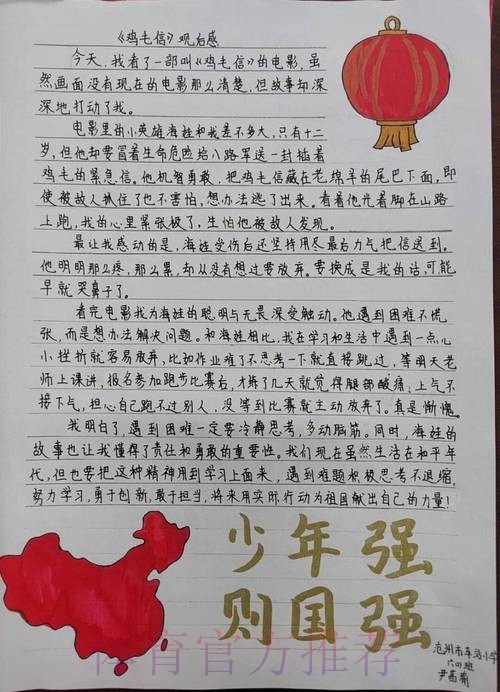 《鸡毛信》观后感
今天，我看了一部叫《鸡毛信》的电影，虽
然画面没有现在的电影那么清楚，但故事却深
深地打动了我。
电影里的小英雄海娃和我差不多大，只有十二
岁，但他却要冒着生命危险给八路军送一封插着
鸡毛的紧急信。他机智勇敢，把鸡毛信藏在老绵羊的尾巴下面，即
使被敌人抓住了也不害怕，想办法逃了出来。看着他光着脚在山路
上跑，我的心里紧张极了，生怕他被敌人发现。
最让我感动的是，海娃受伤后还坚持用尽最后力气把信送到。
他明明那么疼，那么累，却从没有想过要放弃。要换成是我的话，可能
早就哭鼻子了。
看完电影我为海娃的聪明与无畏深受触动。他遇到困难不慌
张，而是想办法解决问题。和海娃相比，我在学习和生活中遇到一点心
小挫折就容易放弃，比如作业难了不思考一下就直接跳过，等明天老
师上课讲，报名参加跑步比赛后，才练了几天就觉得腿部酸痛，上气不
接下气，担心自己跑不过别人，没等到比赛就主动放弃了。真是惭愧。
我明白了，遇到困难一定要冷静思考，多动脑筋。同时，海娃的
故事也让我懂得了责任和勇敢的重要性。我们现在虽然生活在和平年
代，但也要把这种精神用到学习上面来，遇到难题积极思考不退缩，
努力学习，勇于创新，敢于担当，将来用实际行动为祖国献出自己的力量！
少年强
则国强
沧州市车站小学
六四班
体育官方推荐